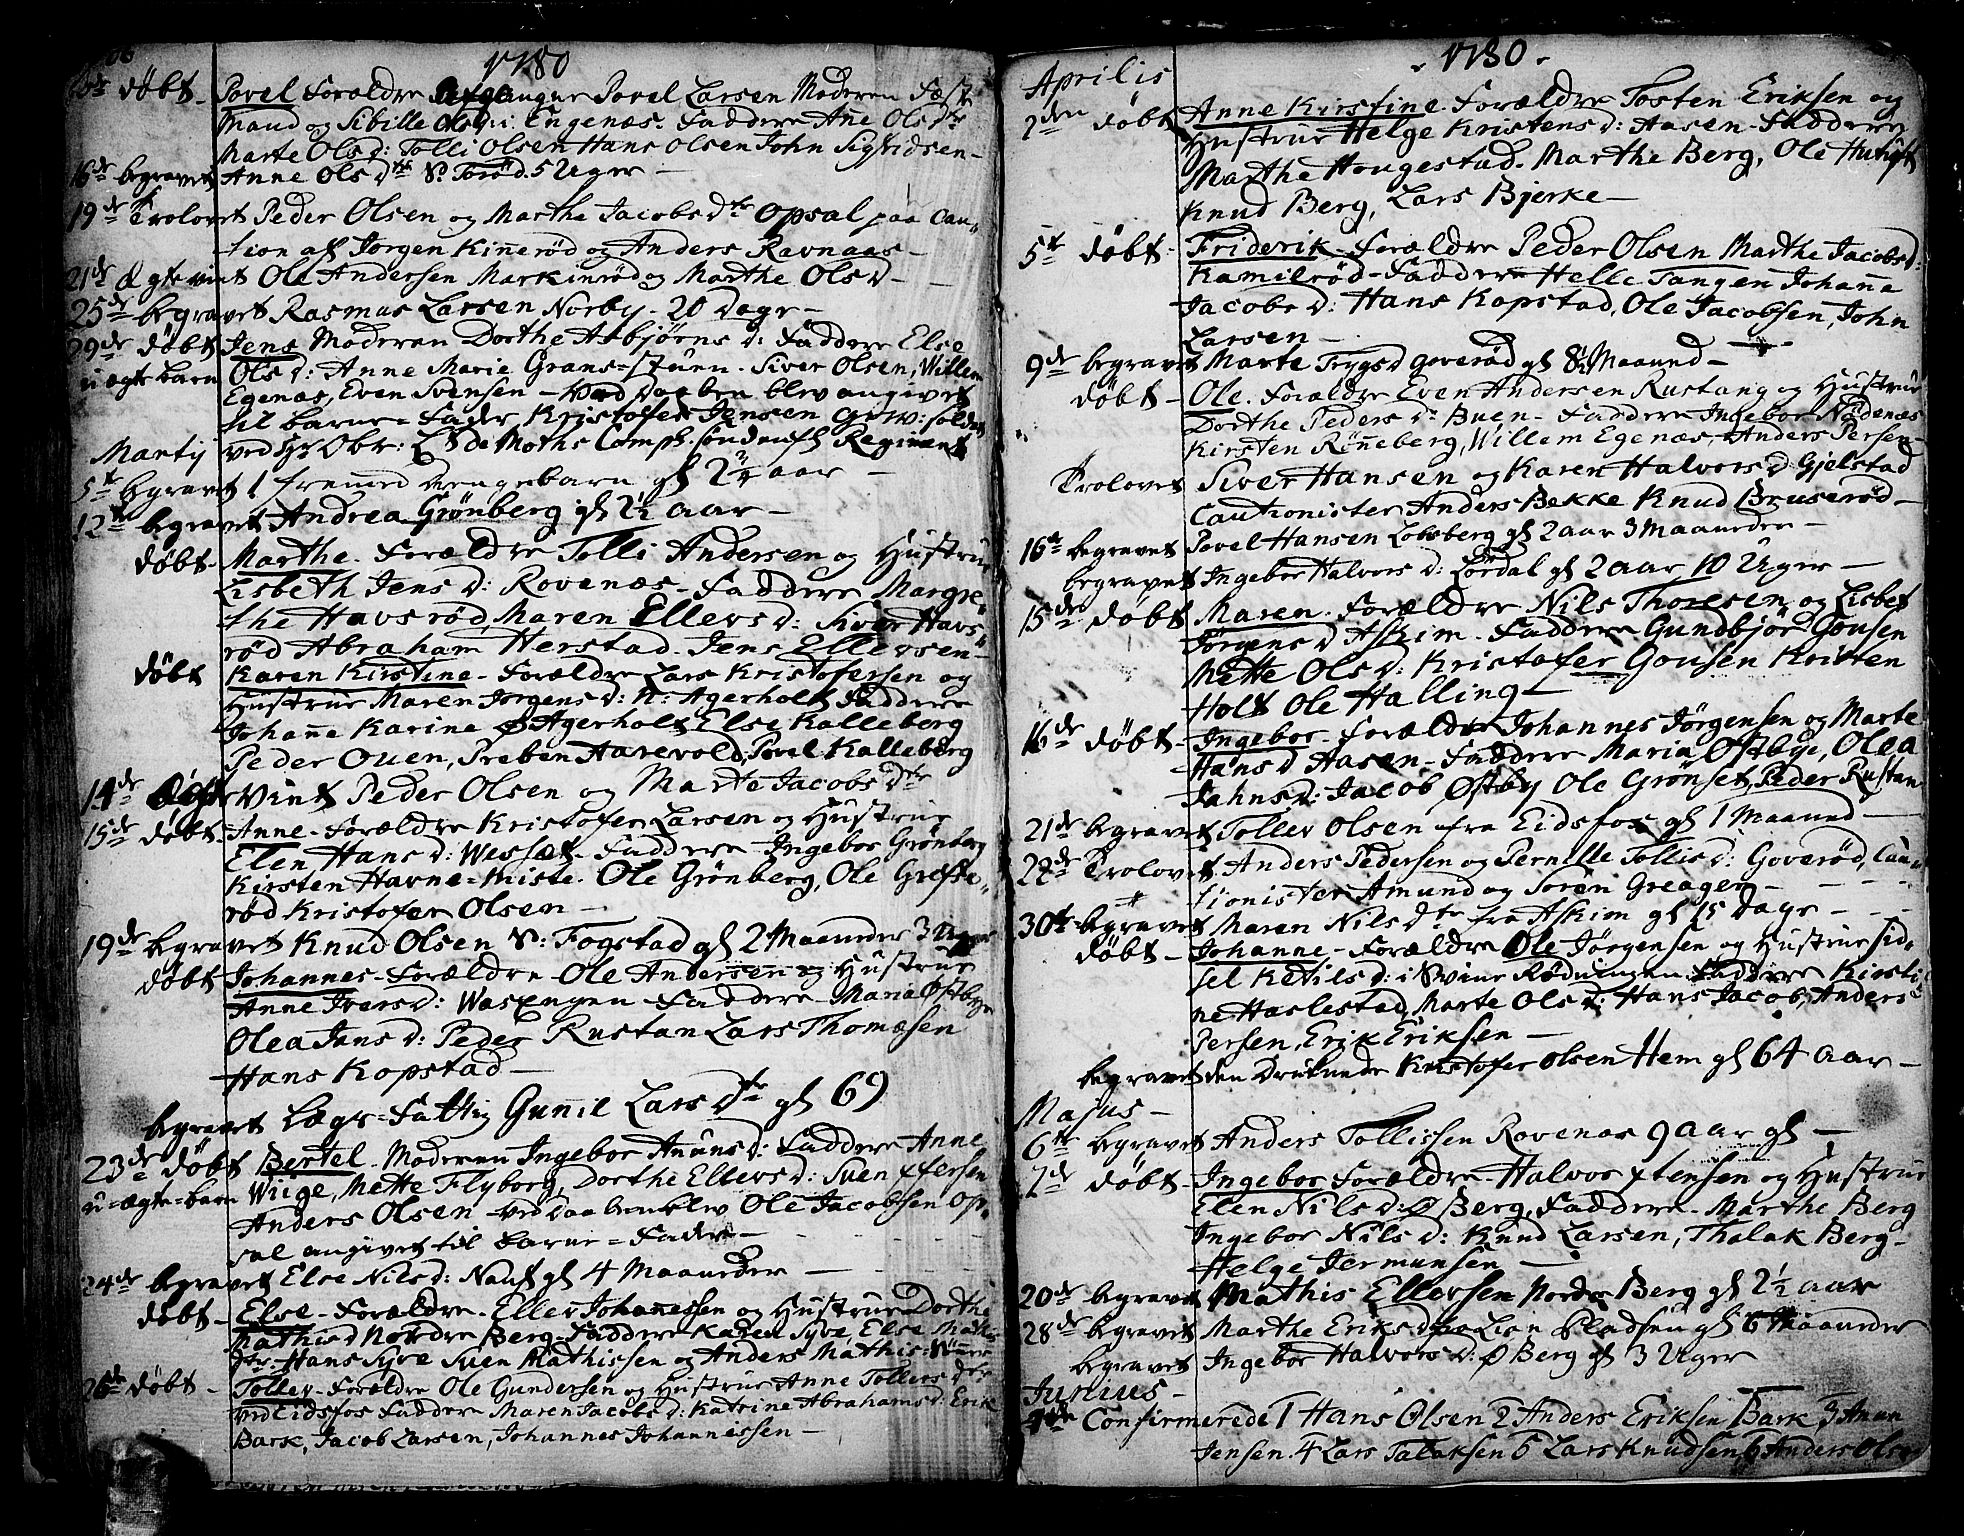 1780
døbt - Povel Forældre Povel Larsen Moderen
Maud og Sibille Engenæs. Faddere Ane Ols Dtr
Marte Ols d: Tolli Olsen Hans Olsen John Sigvidsen -
16de begravet Anne Ols Dtr 5 Uger -
19de Trolovet Peder Olsen og Marthe Jacobs Dtr Opsal paa Cau-
tion af Jørgen Kinerød og Anders Ravnaas -
21de Ægtevint Ole Andersen Markinrød og Marthe Ols D -
25de begravet Rasmus Larsen Norby - 20 Dage -
29de døbt Jens Moderen Dorthe Asbjørns d: Faddere Else
uægte barn Ols d: Anne Marie Grans=stuen. Siver Olsen, Willem
Egenæs, Even Svensen - Ved Daaben blev angivet
til barne=Fader Kristofer Jensen
Martij ved Hr Obr: Comp: Regiment
5te begravet 1 fremmed Drengebarn gl 2 1/4 aar -
12te begravet Andrea Grønberg gl 2 1/2 aar -
døbt - Marthe. Forældre Tolli Andersen og Hustrue
Lisbeth Jens d: Rovenæs - Faddere Margre-
the Havsrød, Maren Ellevs d: Siver Havs-
rød Abraham Herstad. Jens Ellevsen -
døbt Karen Kirstine - Forældre Lars Kristofersen og
Hustrue Maren Jørgens d: N: Agerholt Faddere
Johanne Karine Ø Agerholt Else Kalleberg
Peder Ouen, Preben Aarevold, Povel Kalleberg
14de Ægtevint Peder Olsen og Marte Jacobs Dtr
15de døbt - Anne - Forældre Kristofer Larsen og Hustrue
Elen Hans d: Wessæt - Faddere Ingebor Grønberg
Kirsten Havne=miste. Ole Grønberg, Ole Græste-
rød Kristofer Olsen -
19de begravet Knud Olsen S: Fogstad gl 2 Maaneder 3 Uger
døbt Johannes - Forældre - Ole Andersen og Hustrue
Anne Ivers d: Waspengen - Faddere - Maria Østbye
Olea Jans d: Peder Rustan Lars Thomæsen
Hans Kopstad -
begravet Lægs-Fattig Gunil Lars Dtr gl 69
23de døbt Bertel - Moderen Ingebor Anuns d: Faddere Anne
u=ægte=barn Wiige, Mette Flyborg, Dorthe Ellevs d: Sven Pfersen
Anders Olsen - ved Daaben blev Ole Jacobsen Op-
sal angivet til Barne=Fader -
24de begravet Else Nils d: Nauf gl 4 Maaneder -
døbt - Else - Forældre - Ellev Johannessen og Hustrue Dorthe
Mathis d Nordre Berg - Faddere Karen Syve, Else Mathis
Dtr - Hans Syve Sven Mathissen og Anders Mathis:
26de døbt - Tollev - Forældre Ole Gundersen og Hustrue Anne Tollevs Dtr
ved Eidsfos Faddere Maren Jacobs d: Katrine Abrahams d Erik
Bark, Jacob Larsen, Johannes Johannessen -
1780.
Aprilis
2den døbt Anne Kirstine - Forældre Tosten Eriksen og
Hustrue Helge Kristens d: Aasen - Faddere
Marthe Hougestad. Marthe Berg, Ole
Knud Berg, Lars Bjerke -
5te døbt - Friderik - Forældre Peder Olsen Marthe Jacobs d:
Kamilrød - Faddere Helle Tangen Johanna
Jacobs d: Hans Kopstad, Ole Jacobsen, John
Larsen -
9de begravet Marte Trygs d Goverød gl 8 1/2 Maaned -
døbt - Ole. Forældre Even Andersen Rustang og Hustrue
Dorthe Peders d: Buen - Faddere Ingebor Nødenæs
Kirsten Rønneberg, Willem Egenæs, Anders Persen -
Trolovet Siver Hansen og Karen Halvors d Gjelstad
Cautionister Anders Bekke Knud Bruserød -
16de begravet Povel Hansen Løbsberg gl 2 aar 3 Maaneder -
begravet Ingebor Halvors d: Lørdal gl 2 aar 10 Uger -
15de døbt - Maren. Forældre Nils Thoresen og Lisbet
Jørgens d Askim - Faddere Gundbjør Gousen
Mette Ols d: Kristofer Gousen Kristen
Holt Ole Halling -
16de døbt - Ingebor - Forældre Johannes Jørgensen og Marte
Hans d Aasen - Faddere Maria Østbye, Olea
Jahns d: Jacob Østby Ole Grønset, Peder Rustan
21de begravet Tollev Olsen fra Eidsfos gl 1 Maaned -
22de Trolovet Anders Pedersen og Pernille Tollis d: Goverød, Cau-
tionister Amund og Søren Greager -
30te begravet Maren Nils Dtr fra Askim gl 15 Dage -
døbt - Johanne - Forældre Ole Jørgensen og Hustrue Sid-
sel Ketils d: i Svine Rødningen Faddere Kirsti-
ne Haslestad, Marte Ols d: Hans Jacob, Anders
Persen, Erik Eriksen -
begravet den Druknede Kristofer Olsen Hem gl 64 aar -
Majus -
6te begravet Anders Tollissen Rovenæs 9 aar gl -
7de døbt - Ingebor Forældre - Halvor Xtensen og Hustrue
Elen Nils d: Ø Berg, Faddere - Marthe Berg
Ingebor Nils d: Knud Larsen, Thalak Berg -
Helge Jermunsen -
20de begravet Mathis Ellevsen Nordre Berg gl 2 1/2 aar
28de begravet Marthe Eriks d fra Lian Pladsen gl 6 Maaneder
begravet Ingebor Halvors d: Ø Berg gl 3 Uger
Junius -
Confirmerede 1 Hans Olsen 2 Anders Eriksen Bark 3 Anun
Jensen. 4 Lars Talaksen 5 Lars Knudsen 6 Anders Olsen